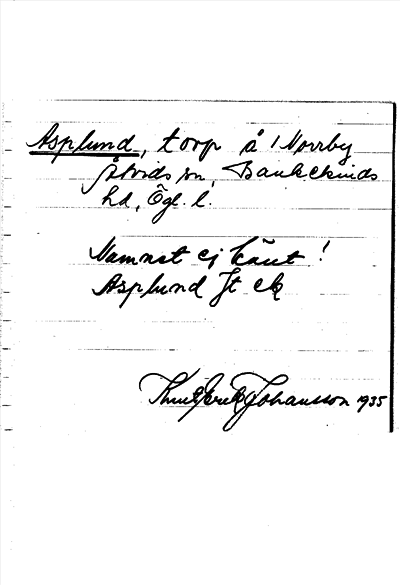 Asplund, torp å Norrby
Åtvids sn, Bankekinds
hd, Ögl. l.
Namnet ej känt!
Asplund Jt ek
Knut Erik Johansson 1935